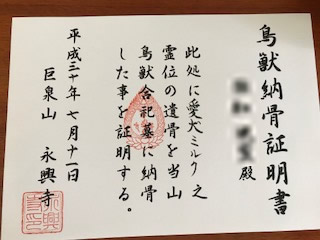 鳥獣納骨証明書
殿
此処に愛犬ミルク之
霊位の遺骨を当山
鳥獣合祀墓に納骨
した事を証明する。
平成三十年七月十一日
巨泉山 永興寺